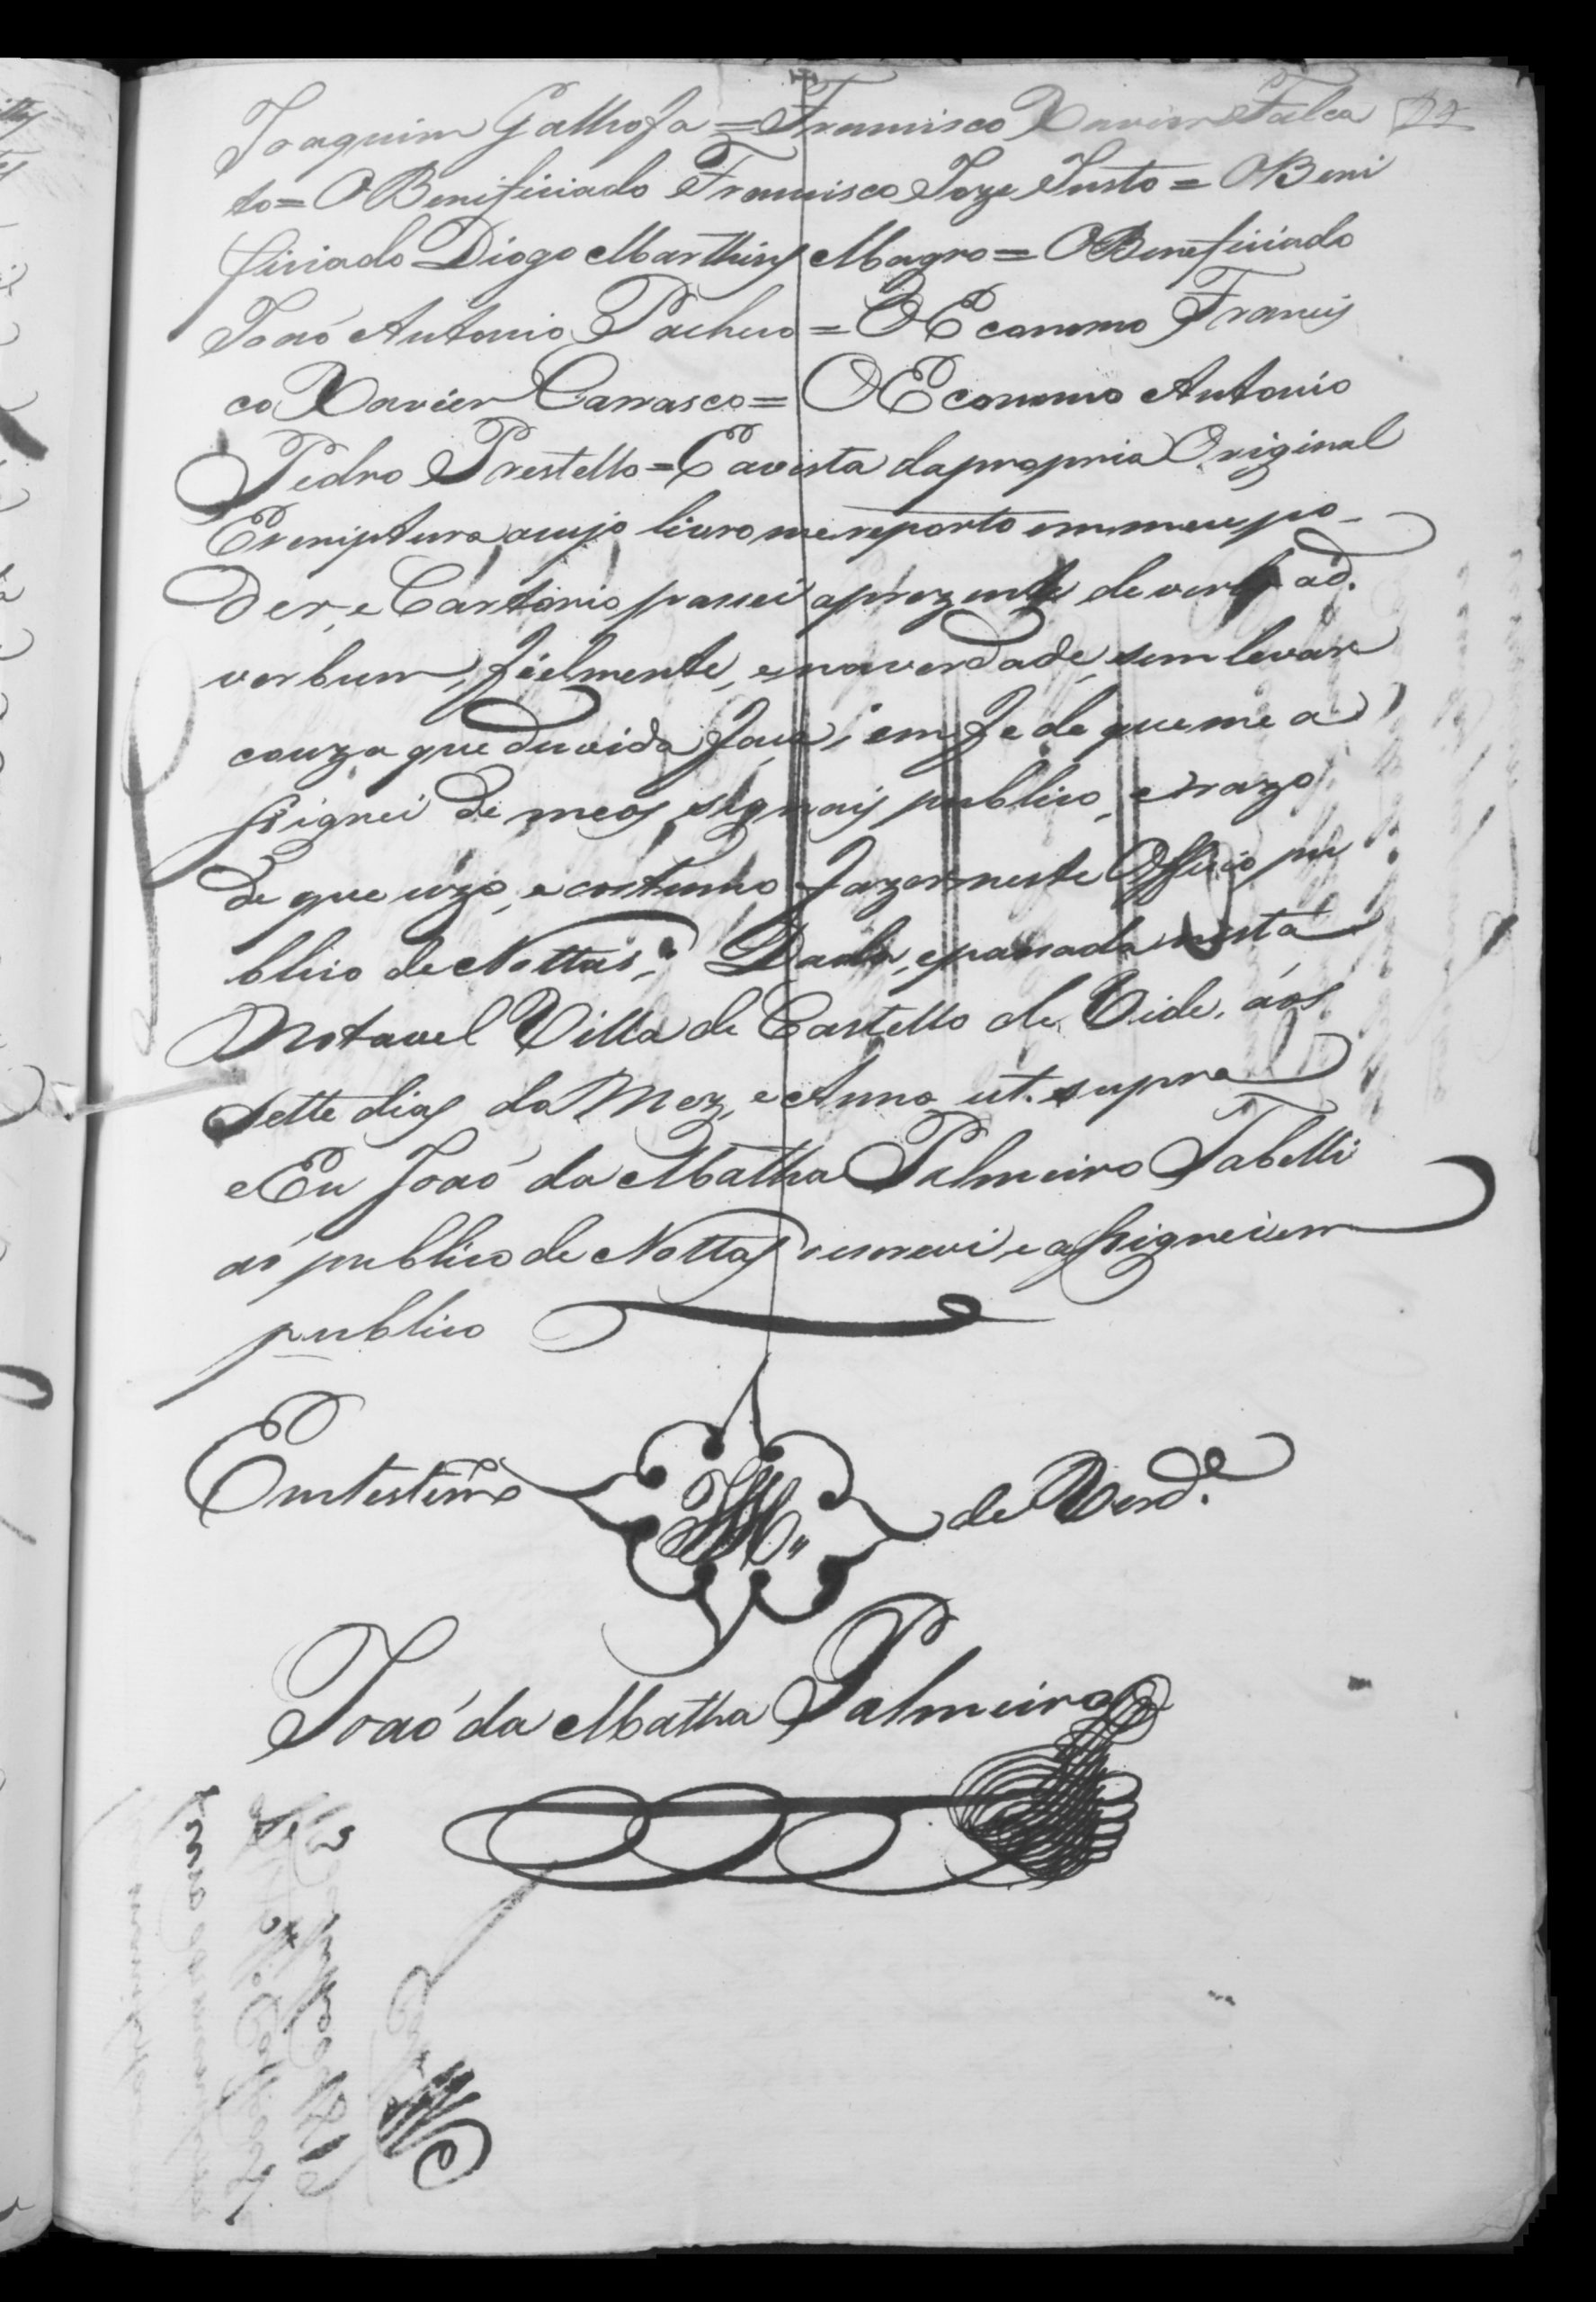 Joaquim Galhofa = Francisco Xavier Falca
to = O Benificiado Francisco Joze Justo = O Beni
ficiado Diogo Marthins Magro = O Beneficiado
Joaõ Antonio Pacheco = O Economo Francis
co Xavier Carrasco = O Economo Antonio
Pedro Prestello = E avista da propria Original
Escriptura acujo livro me reporto em meu po-
der, e Cartorio passei aprezente de verb ad.
verbum, fielmente, e na verdade, sem levar
couza que duvida faça, em fe de que me a
ssignei de meos signais publico, e razo
de que uzo, e costumo fazer neste Officio pu
blico de Nottas. Dada, e passada nesta
Notavel Villa de Castello de Vide, aos
sette dias do Mez, e Anno ut. supra
e Eu Joaõ da Matha Palmeiro Tabelli
aõ publico de Nottas o escrevi e assignei em
publico
Em testem.º de Verd.e
Joaõ da Matha Palmeiro